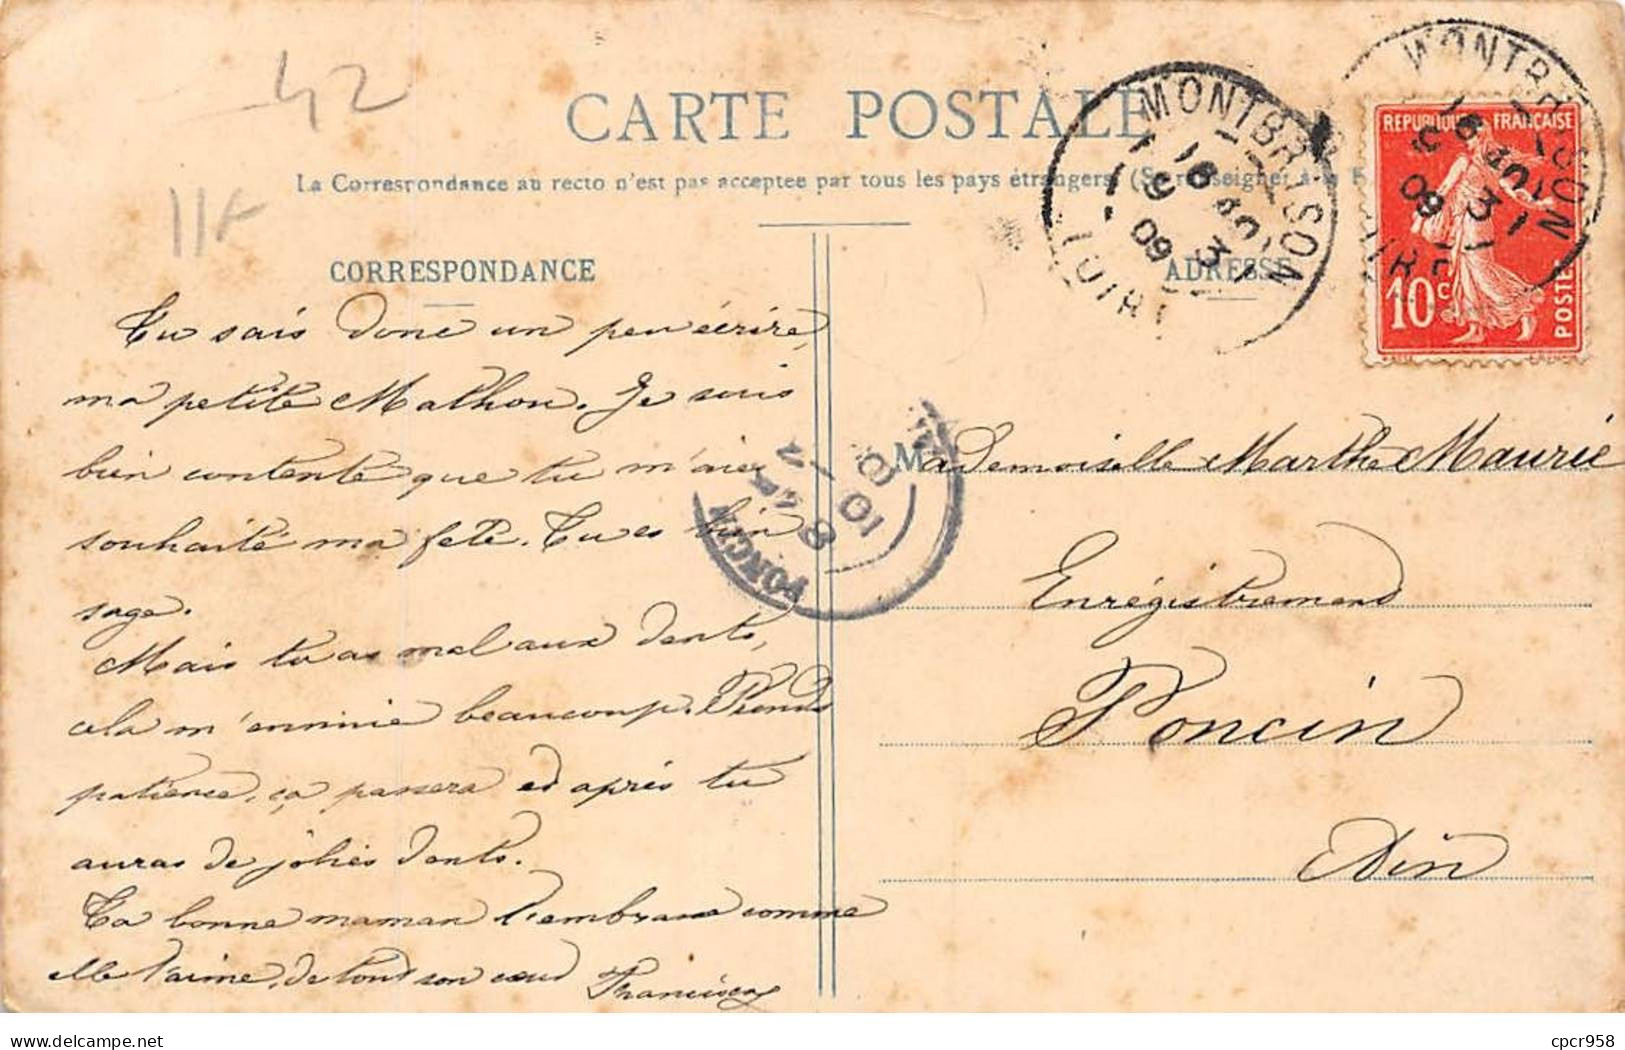 42
11A
CARTE POSTALE
La Correspondance au recto n'est pas acceptee par tous les pays étrangers (Se renseigner à la
CORRESPONDANCE
Tu sais donc un peu écrire,
ma petite Mathon. Je suis
bien contente que tu m'aies
souhaité ma fete. Tu es bien
sage.
Mais tu as mal aux dents,
cela m'ennuie beaucoup. Prends
patience, ça passera et après tu
auras de jolies dents.
Ta bonne maman t'embrasse comme
elle t'aime, de tout son coeur
ADRESSE
MONTBRISON
LOIRE
16
3
09
MONTBRISON
16
3
09
REPUBLIQUE FRANÇAISE
10c
POSTES
PONCIN
Mademoiselle Marthe Maurice
Enrégistrement
Poncin
Ain
delcampe.net
cpcr958